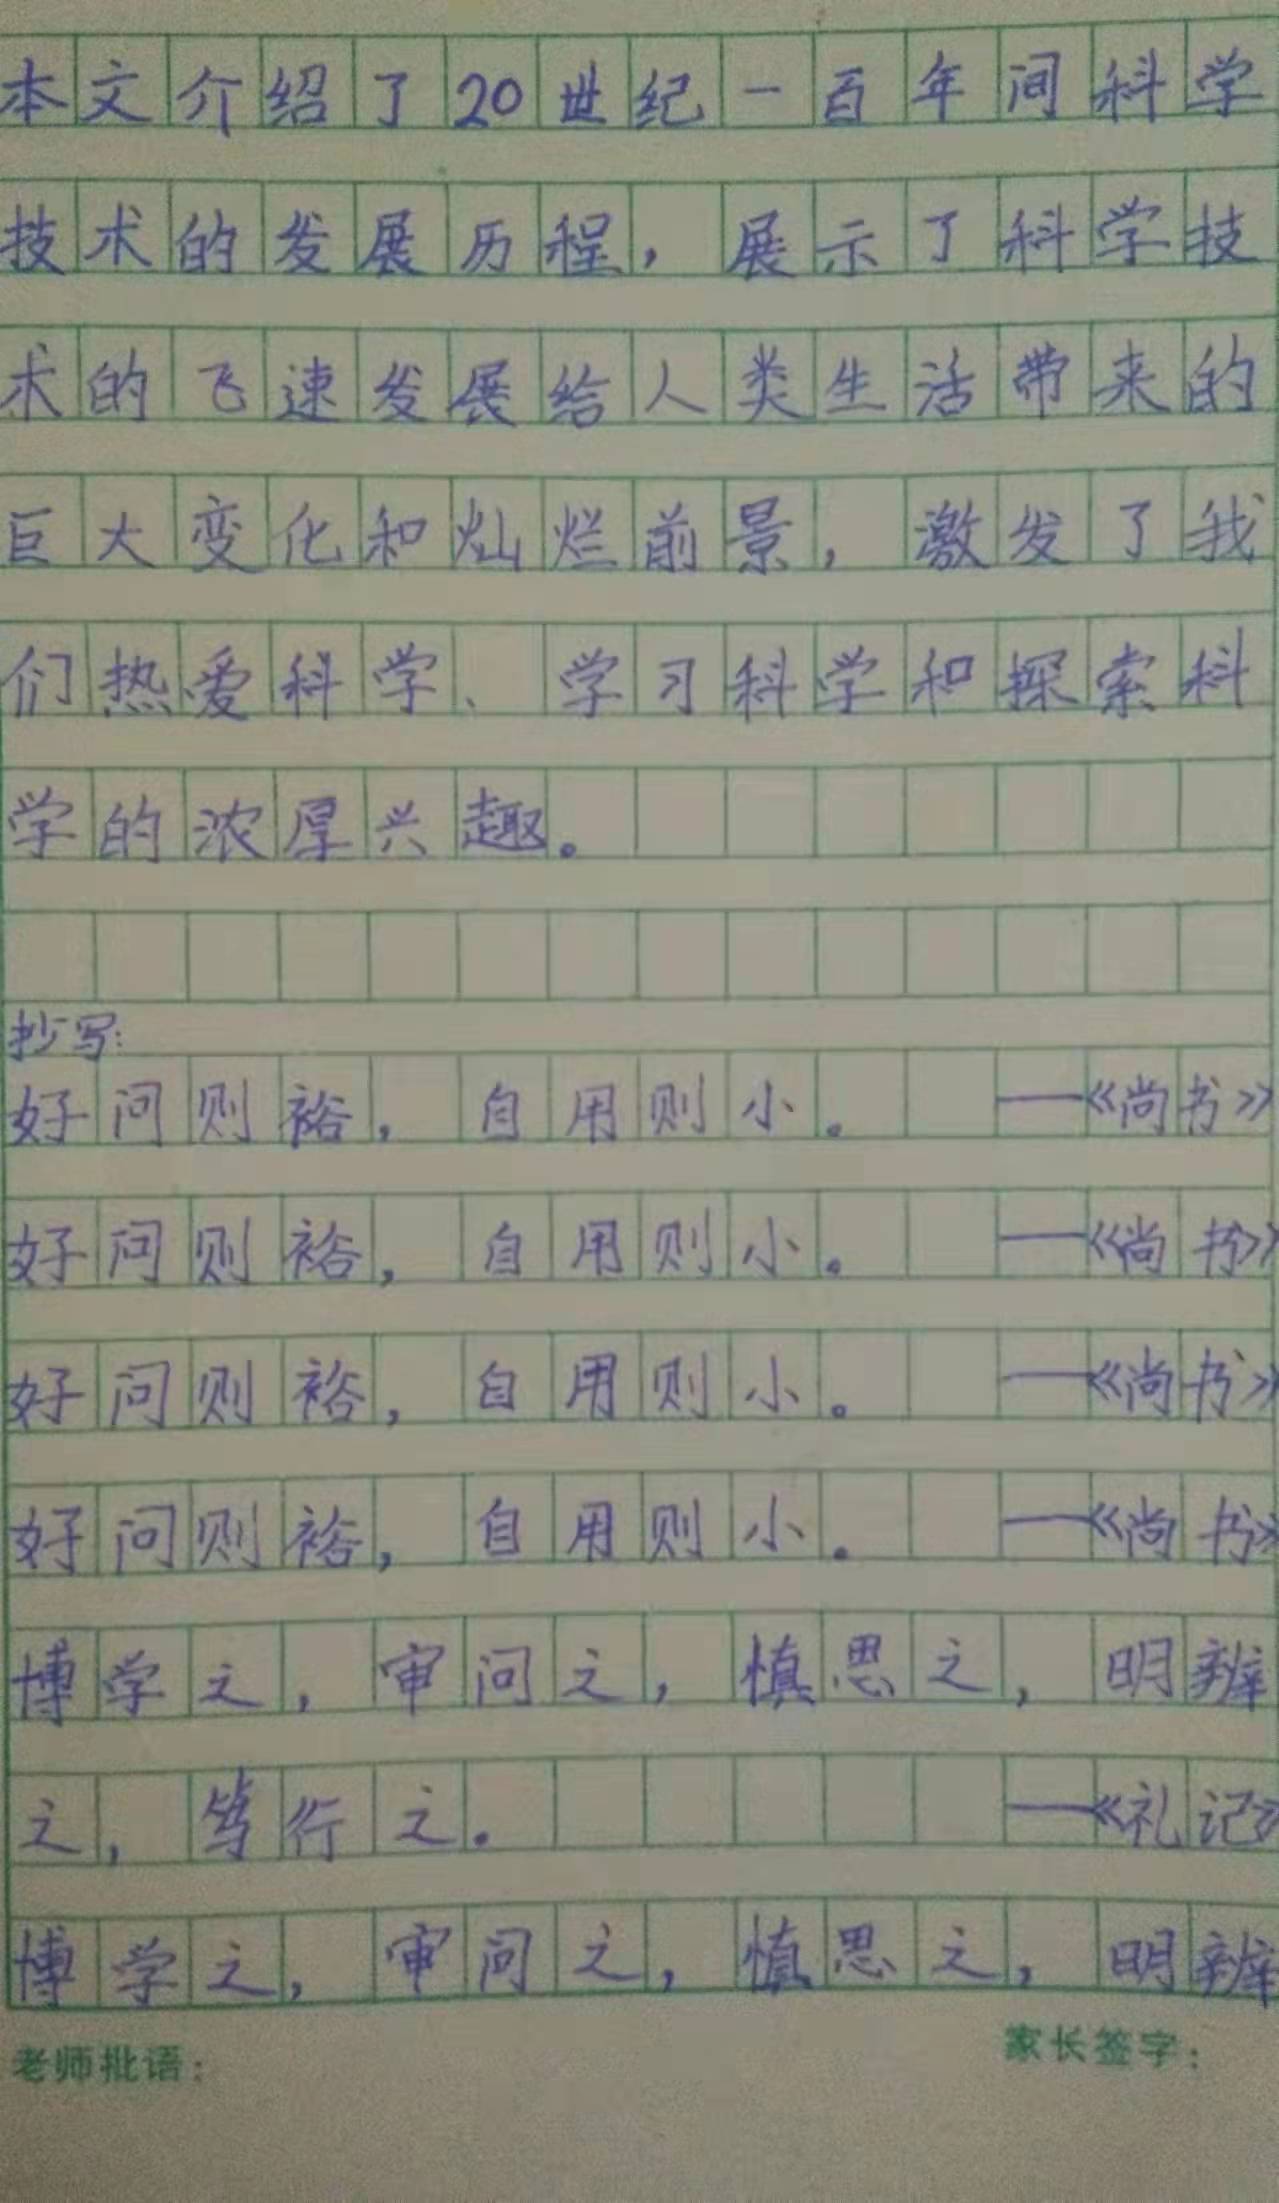 本文介绍了20世纪一百年间科学
技术的发展历程，展示了科学技
术的飞速发展给人类生活带来的
巨大变化和灿烂前景，激发了我
们热爱科学、学习科学和探索科
学的浓厚兴趣。
抄写：
好问则裕，自用则小。——《尚书》
好问则裕，自用则小。——《尚书》
好问则裕，自用则小。——《尚书》
好问则裕，自用则小。——《尚书》
博学之，审问之，慎思之，明辨
之，笃行之。——《礼记》
博学之，审问之，慎思之，明辨
老师批语：
家长签字：